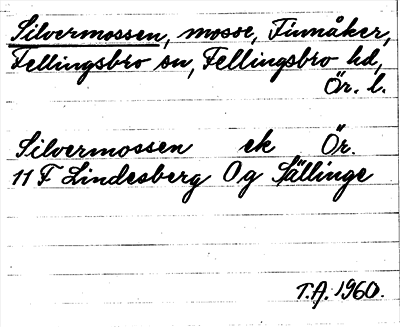 Silvermossen, mosse, Finnåker,
Fellingsbro sn, Fellingsbro hd,
Ör. l.
Silvermossen ek Ör.
11 F Lindesberg Og Spällinge
T.A. 1960.